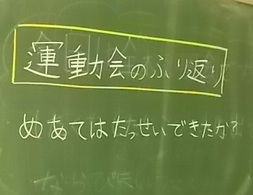 運動会のふり返り
めあてはたっせいできたか?